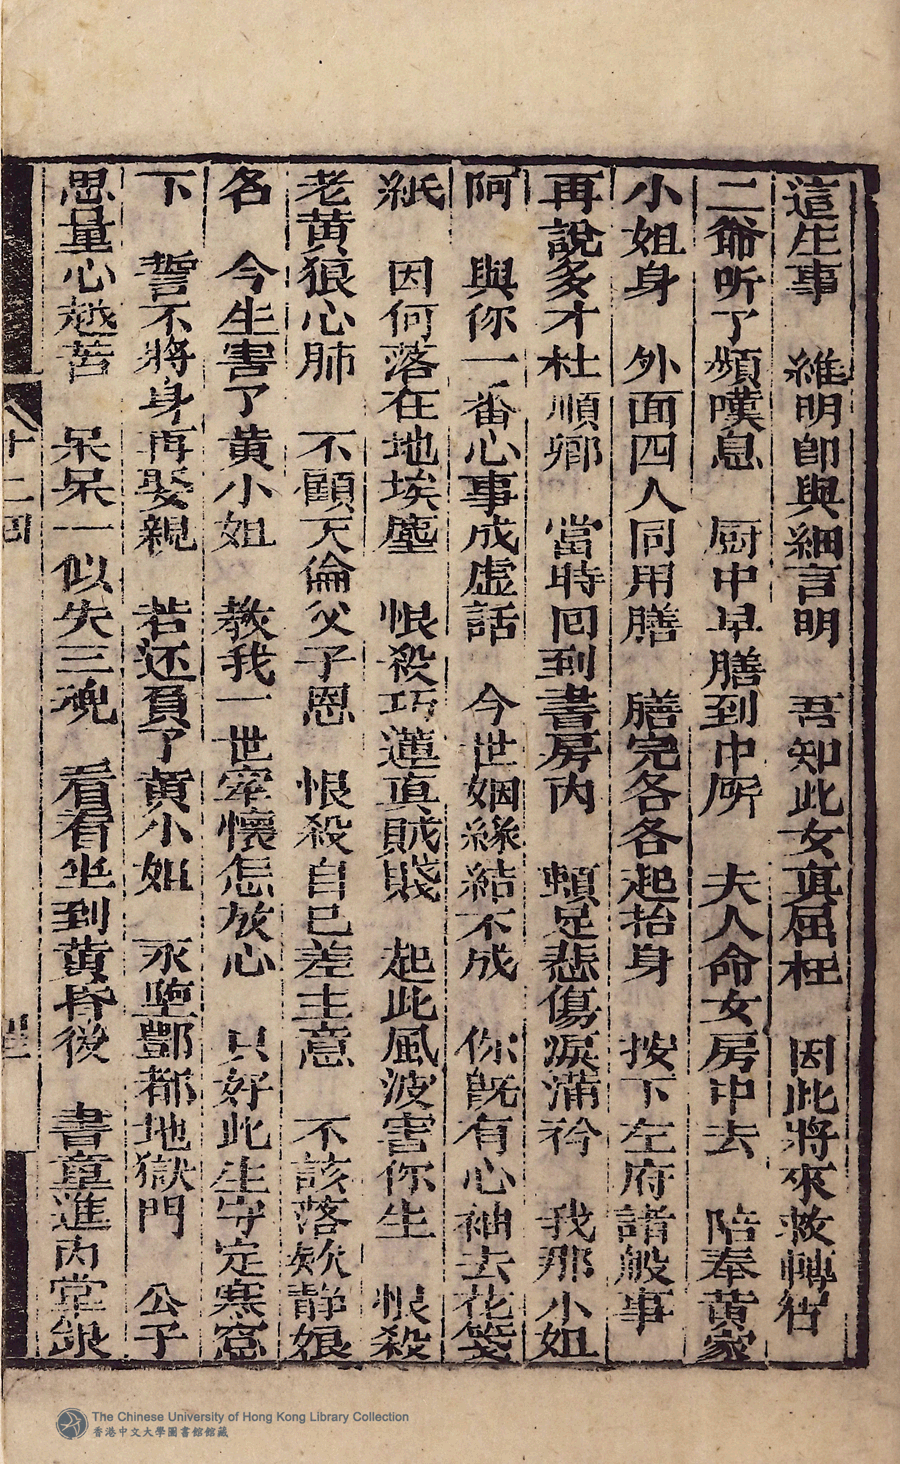 這生事　維明即與細言明　吾知此女真屈枉　因此將來救轉
二爺听了頻嘆息　厨中早膳到中𠩄　夫人命女房中去　陪奉黃家
小姐身　外面四人同用膳　膳完各各起抬身　按下左府諸般事
再說多才杜順卿　當時回到書房內　頓足悲傷淚滿衿　我那小姐
阿　與你一番心事成虛話　今世姻緣結不成　你既有心袖去花箋
紙　因何落在地埃塵　恨殺巧蓮真賊賤　起此風波害你生　恨殺
老黃狼心肺　不顧天倫父子恩　恨殺自己差主意　不該落欵靜娘
名　今生害了黃小姐　教我一世牽懷怎放心　只好此生守定寒窓
下　誓不將身再娶親　若还負了黃小姐　永墮酆都地獄門　公子
思量心越苦　呆呆一似失三魂　看看坐到黃昏後　書童進內掌銀
十二回
The Chinese University of Hong Kong Library Collection
香港中文大學圖書館館藏